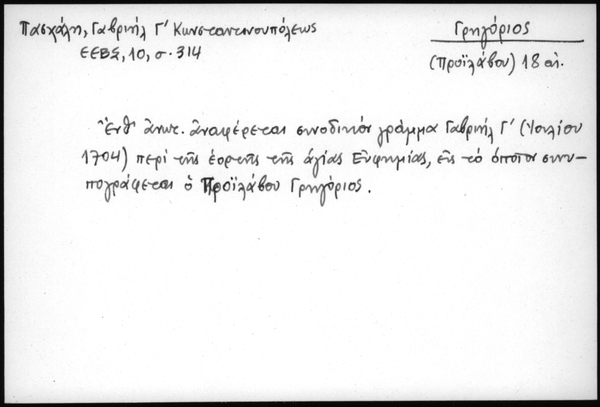 Πασχάλη, Γαβριήλ Γ' Κωνσταντινουπόλεως
ΕΕΒΣ, 10, σ. 314
Γρηγόριος
(Προϊλάβου) 18 αἰ.
Ἔνθ' ἄνωτ. ἀναφέρεται συνοδικόν γράμμα Γαβριήλ Γ' (Ἰουλίου
1704) περί τῆς ἑορτῆς τῆς ἁγίας Εὐφημίας, εἰς τό ὁποῖον συνυ-
πογράφεται ὁ Προϊλάβου Γρηγόριος.